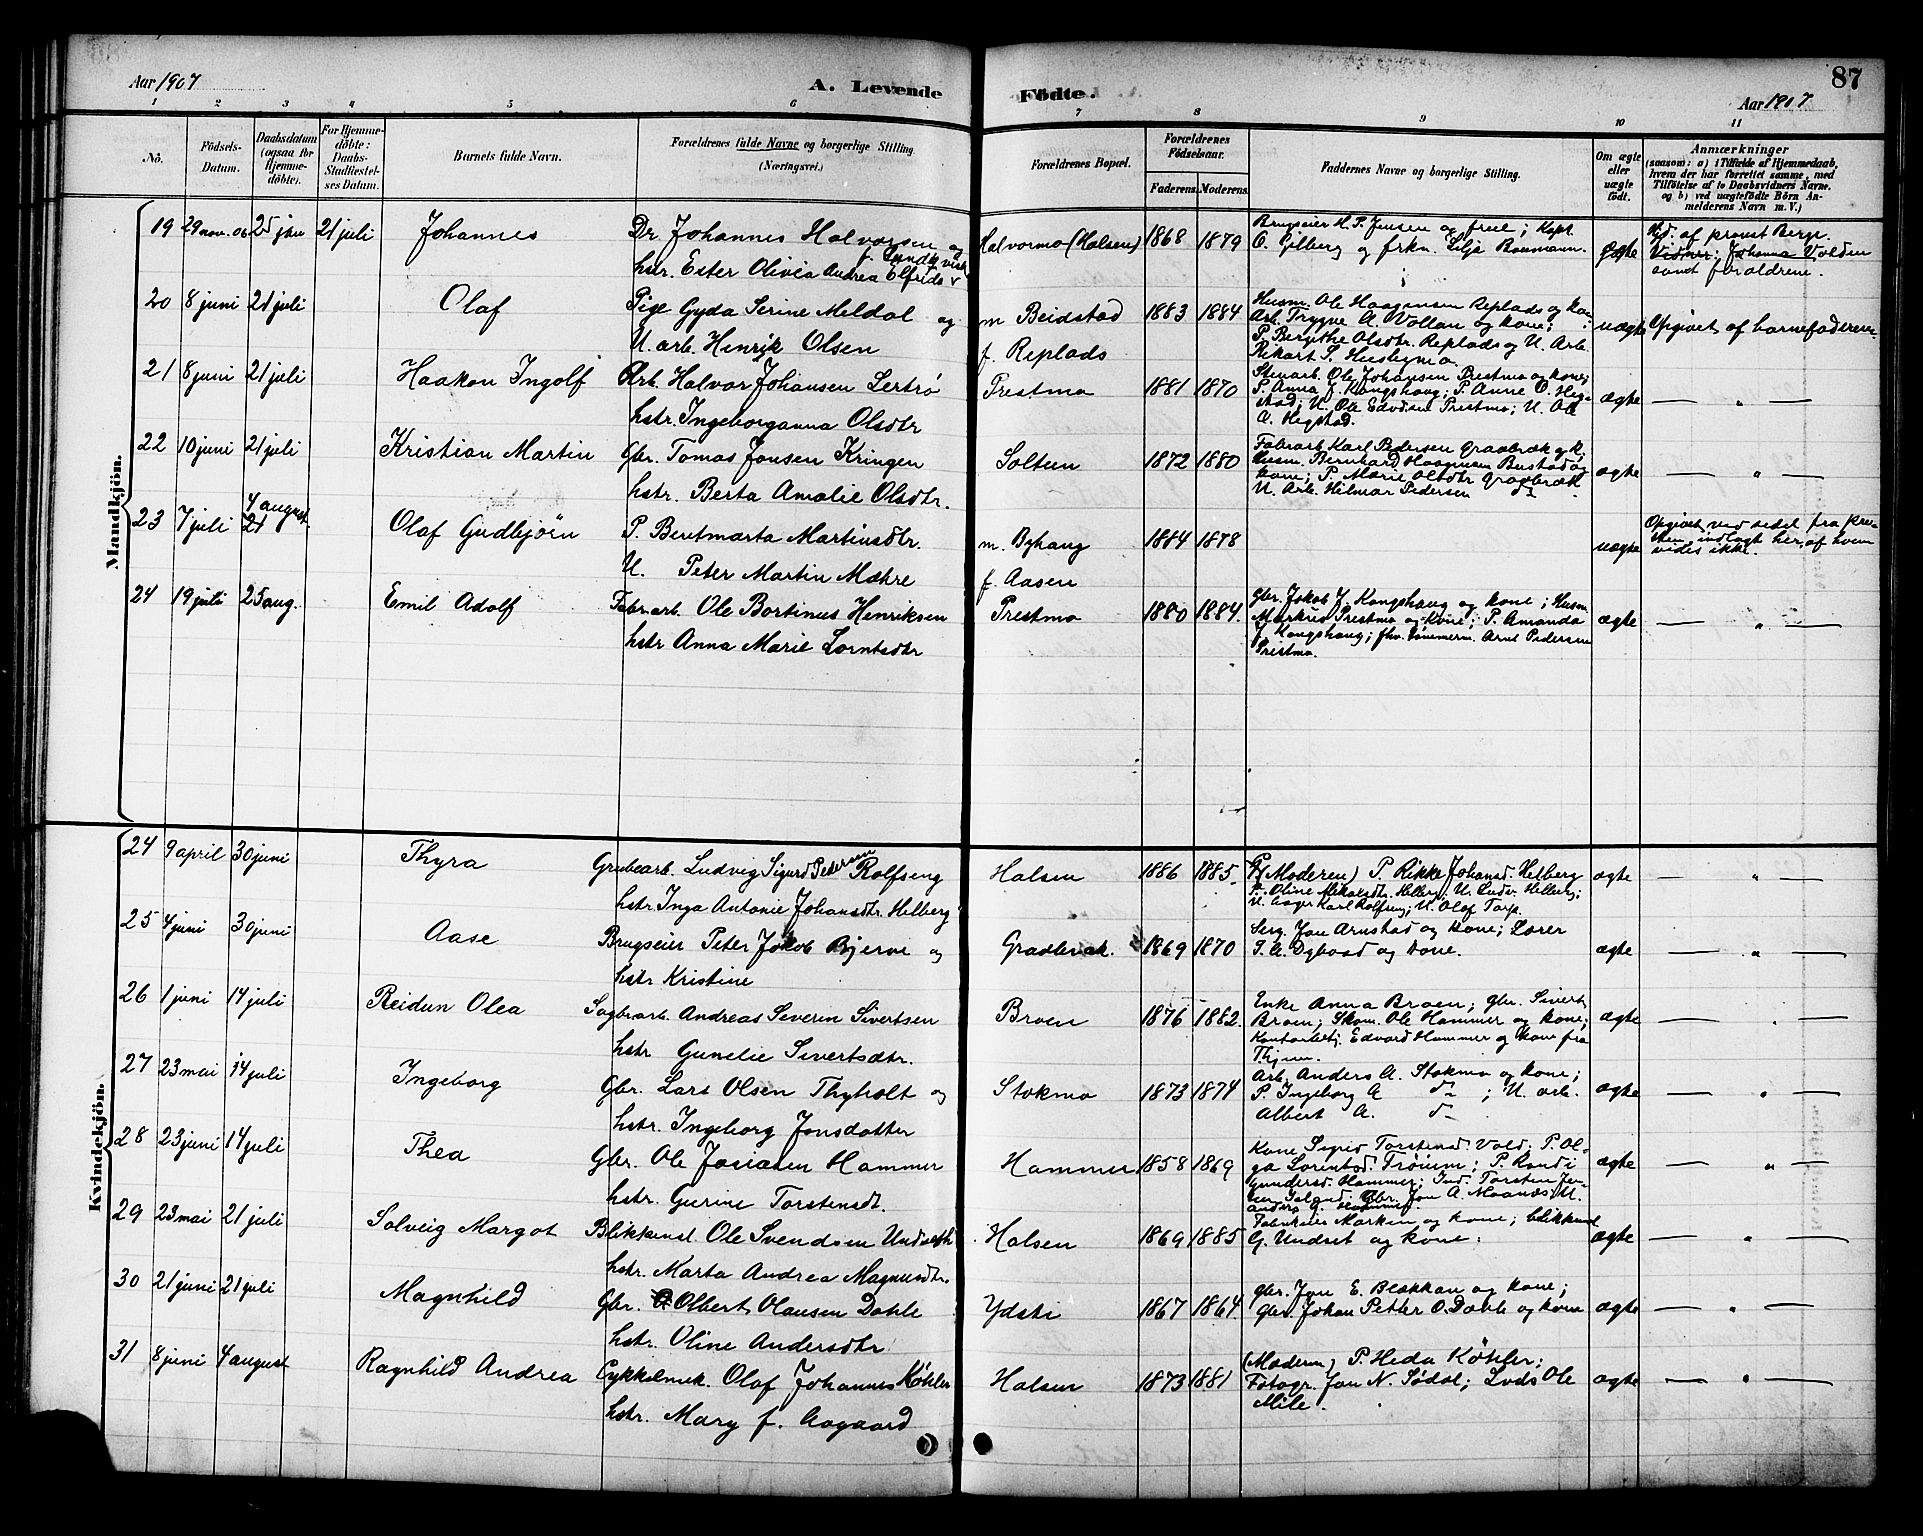 Aar 1907
A. Levende Födte.
Aar 1907
87
1 2 3 4 5 6 7 8 9 10 11
No.
Födsels-Datum.
Daabsdatum (ogsaa for Hjemme-döbte).
For Hjemme-döbte: Daabs-Stadfæstel-ses Datum.
Barnets fulde Navn.
Forældrenes fulde Navne og borgerlige Stilling. (Næringsvei.)
Forældrenes Bopæl.
Forældrenes Födselsaar.
Faderens. Moderens.
Faddernes Navne og borgerlige Stilling.
Om ægte eller uægte födt.
Anmærkninger
(saasom: a) i Tilfælde af Hjemmedaab, hvem der har forrettet samme, med Tilföielse af to Daabsvidners Navne. og b) ved uægtefödte Börn An-melderens Navn m. V.)
Mandkjön.
19 29 nov. 06 25 jan 21 juli Johannes Dr Johannes Halvorsen og Halvormo (Halsen) 1868 1879 Brugseier H. P. Jensen og frue; Kapt. ægte Hjd. af provst Berge.
hstr. Ester Olivia Andrea Elfrida f. Lundkvist O. Gilberg og frkn. Silja Baumann. Vidner: Johanna Volden
samt forældrene.
20 8 juni 21 juli Olaf Pige Gyda Serine Meldal og m Beidstad 1883 1884 Husm. Ole Haagensen Replads og kone uægte Opgivet af barnefaderen
U. arb. Henrik Olsen f. Replads Arb. Trygve A. Vollan og kone;
P. Bergithe Olsdtr. Replads og U. Arb.
Rikart S. Huslegmo
21 8 juni 21 juli Haakon Ingolf Arb. Halvor Johansen Lertrø Prestmo 1881 1870 Stenarb. Ole Johansen Prestmo og kone; ægte — " —
hstr. Ingeborganna Olsdtr P. Anna J. Kongshaug; P. Anne O. Heg-
stad; U. Ole Edvdsen Prestmo; U. Ole
A. Hegstad.
22 10 juni 21 juli Kristian Martin Gbr. Tomas Jonsen Kringen Soltun 1872 1880 Fabrarb. Karl Pedersen Graabræk og k; ægte — " —
hstr. Berta Amalie Olsdtr. Husm. Bernhard Haagensen Bustad og
kone; P. Marie Olsdtr Graabræk
U. Arb. Hilmar Pedersen do.
23 7 juli 4 august 21 Olaf Gudbjörn P. Beretmarta Martinsdtr. m. Byhaug 1884 1878 uægte Opgivet ved sedel fra
U. Peter Martin Mæhre f. Aasen indlagt her, af hvem
vides ikke.
24 19 juli 25 aug. Emil Adolf Fabrarb. Ole Bortinus Henriksen Prestmo 1880 1884. Gbr. Jokob J. Kongshaug og kone; Husm. ægte — " —
hstr Anna Marie Lorntsdtr Markus Prestmo og kone; P. Amanda
J. Kongshaug; fhv. tömmerm. Arnt Pedersen
Prestmo.
Kvindekjön.
24 9 april 30 juni Thyra Grubearb. Ludvig Sigurd Pedersen Rolfseng Halsen 1886 1885. (Moderen) P. Rikke Johansd. Helberg ægte — " —
hstr. Inga Antonie Johansdtr. Helberg P. Oline Mikalsdtr. Helberg; U. Ludv. Helberg;
U. Karl Rolfseng; U. Olaf Torp.
25 4 juni 30 juni Aase Brugseier Peter Jokob Bjerve og Graabræk. 1869 1870 Serg. Jon Arnstad og kone; Lærer ægte — " —
hstr Kristine I. A. Dybvad og kone.
26 1 juni 14 juli Reidun Olea Sagbrarb. Andreas Severin Sivertsen Broen 1876 1882. Enke Anna Broen; Gbr. Sivert ægte — " —
hstr. Gunelie Sivertsdtr. Broen; Skom. Ole Hammer og kone;
Kontorbetj. Edvard Hammer og kone fra
27 23 mai 14 juli Ingeborg Gbr. Lars Olsen Thyholt og Stokmo 1873 1874 Arb. Anders A. Stokmo og kone; ægte — " —
hstr. Ingeborg Jonsdatter P. Ingeborg A do; U. arb.
Albert A. do
28 23 juni 14 juli Thea Gbr. Ole Josiasen Hammer Hammer 1858 1869 Kone Sigrid Torstensd. Vold; P. Ol- ægte — " —
hstr. Gurine Torstensdt. ga Lorentsd. Trönem; P. Randi
Gundersd. Hammer; Ind. Torsten Jen-
sen; Gbr. Jon A. Maanæs; U.
Anders G. Hammer.
29 23 mai 21 juli Solveig Margot Blikkensl. Ole Svendsen Undseth Halsen 1869 1885 Fabrikeier Marken og kone; blikkensl ægte — " —
hstr. Marta Andrea Magnusdtr. G. Undset og kone.
30 21 juni 21 juli Magnhild Gbr. Olbert Olausen Dahle Ydsti 1867 1864. Gbr. Jon E. Blækkan og kone; ægte — " —
hstr. Oline Andersdtr Gbr. Johan Petter O. Dahle og kone
31 8 juni 4 august Ragnhild Andrea Cykkelmek. Olaf Johannes Köhler Halsen 1873 1881 (Moderen) P. Heda Köhler; ægte — " —
hstr. Mary f. Aagaard Fotogr. Jon N. Sødal; Lods Ole
Mile.